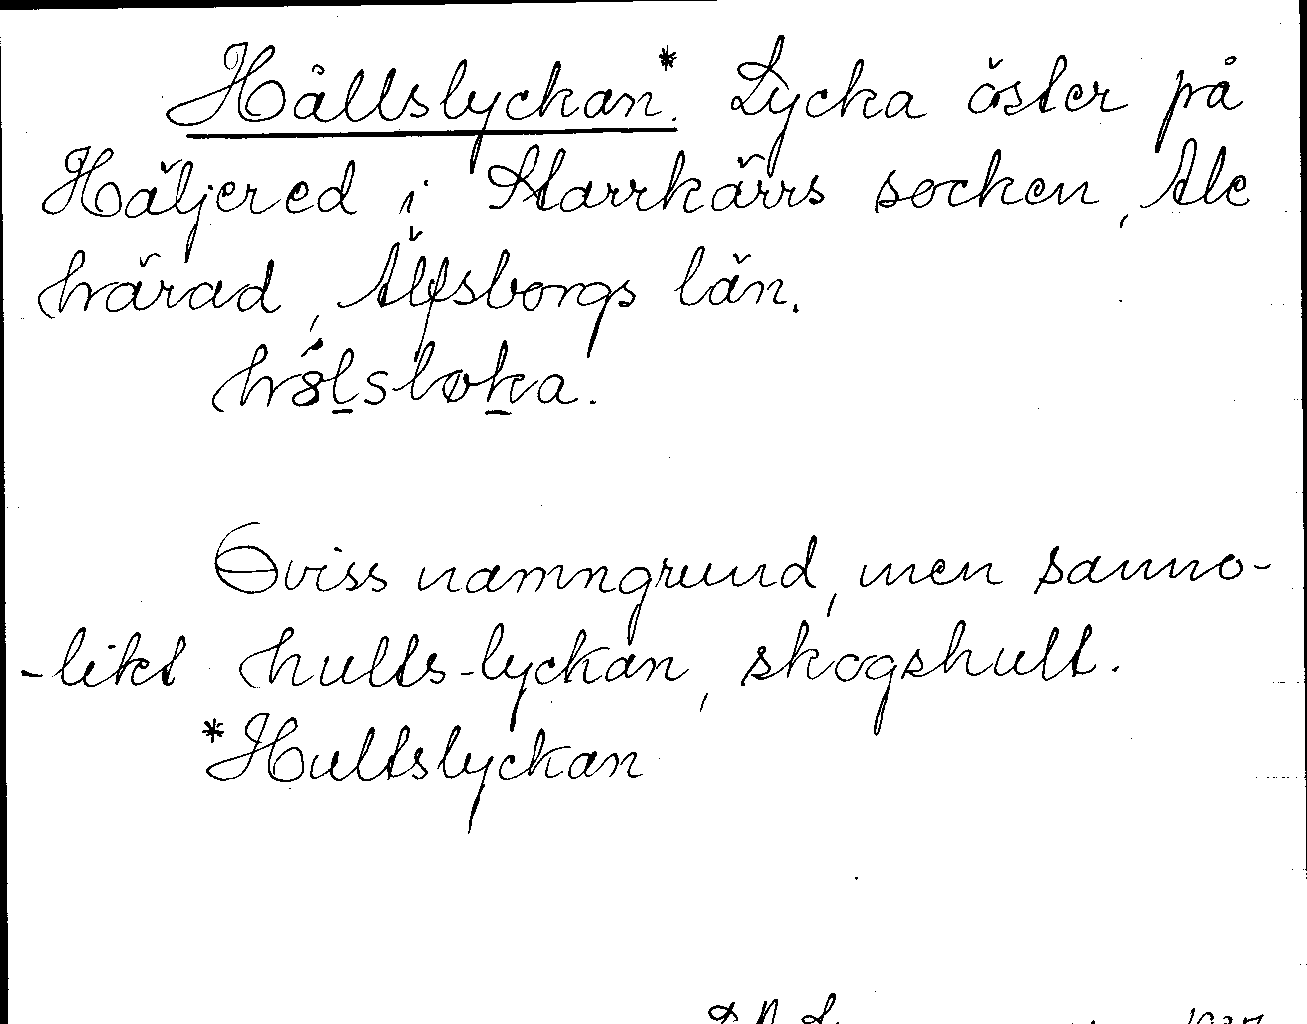 Hållslyckan.* Lycka öster på
Häljered i Starrkärrs socken, Ale
härad, Älfsborgs län.
hó̤lsløka.
Oviss namngrund, men sanno-
-likt hults-lyckan, skogshult.
*Hultslyckan